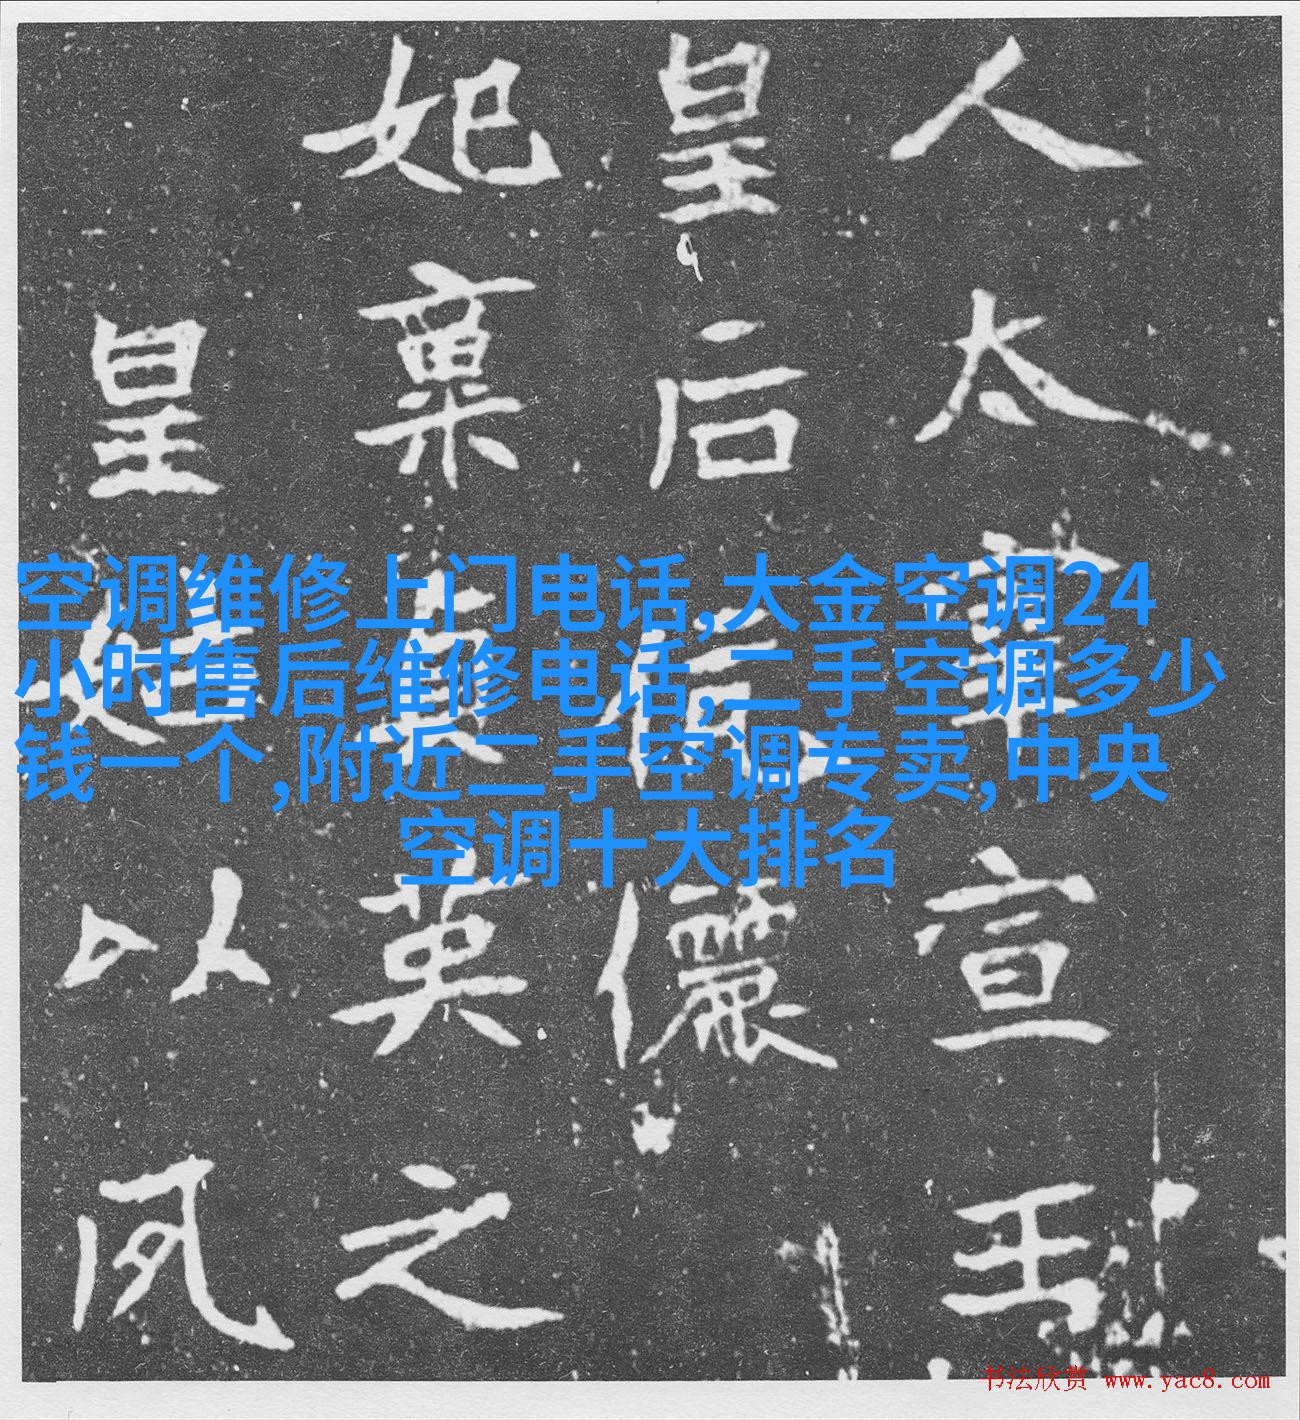 空调维修上门电话,大金空调24
小时售后维修电话,二手空调多少
钱一个,附近二手空调专卖,中央
空调十大排名
人太宣王
皇后儷
妃稟英之
皇以夙
书法欣赏 www.yac8.com